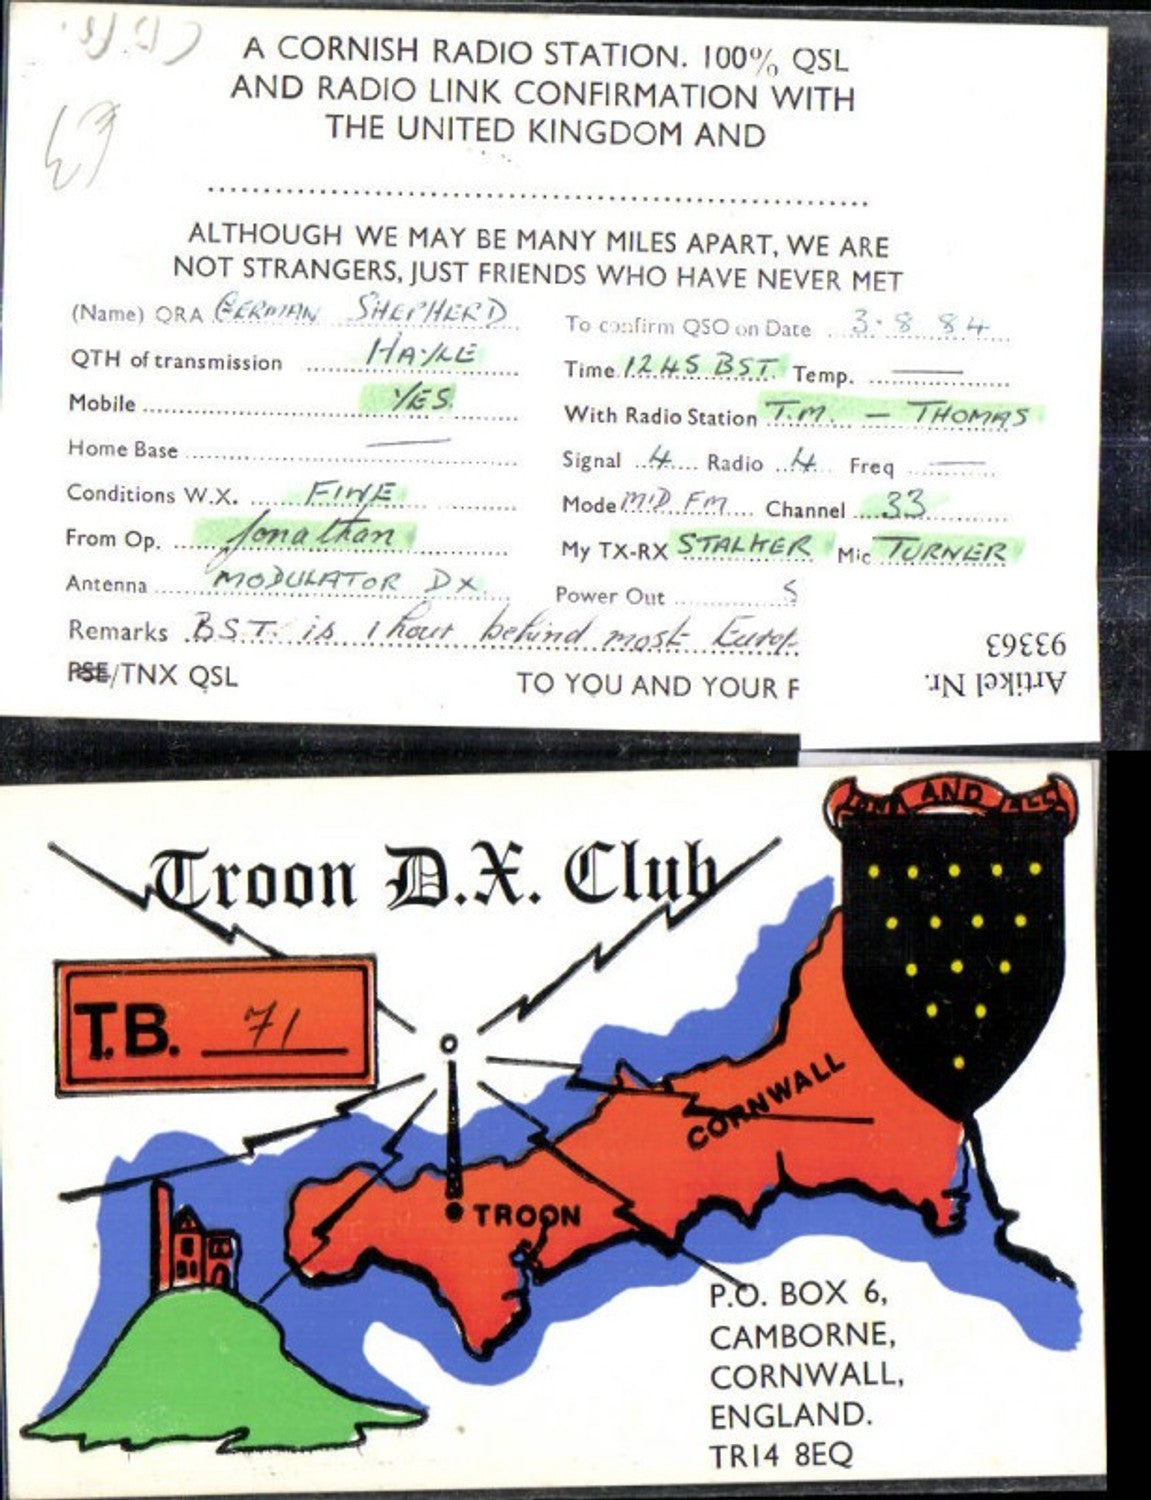 A CORNISH RADIO STATION. 100% QSL
AND RADIO LINK CONFIRMATION WITH
THE UNITED KINGDOM AND
ALTHOUGH WE MAY BE MANY MILES APART, WE ARE
NOT STRANGERS, JUST FRIENDS WHO HAVE NEVER MET
(Name) QRA GERMAN SHEPHERD
To confirm QSO on Date 3.8 84
QTH of transmission HAYLE
Time 1245 BST. Temp. —
Mobile YES.
With Radio Station T.M. — THOMAS
Home Base —
Signal 4 Radio 4 Freq —
Conditions W.X. FINE
Mode MID FM Channel 33
From Op. Jonathan
My TX-RX STALKER Mic TURNER
Antenna MODULATOR DX
Power Out
Remarks B.S.T. is 1 hour behind most Europ
PSE/TNX QSL
TO YOU AND YOUR F
Artikel Nr.
93363
ONE AND ALL
Troon D.X. Club
T.B. 71
CORNWALL
TROON
P.O. BOX 6,
CAMBORNE,
CORNWALL,
ENGLAND.
TR14 8EQ